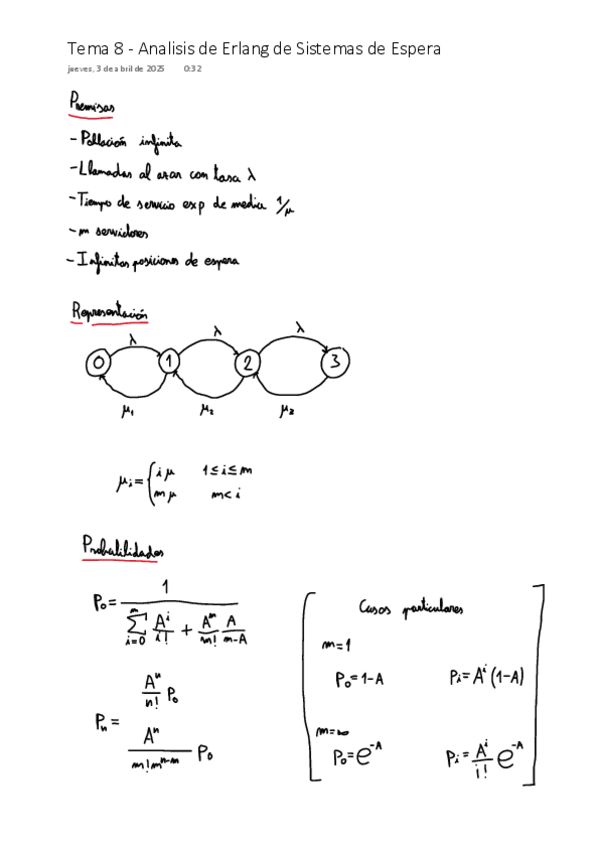 Tema 8 - Analisis de Erlang de Sistemas de Espera
jueves, 3 de abril de 2025 0:32
Premisas
- Población infinita
- Llamadas al azar con tasa λ
- Tiempo de servicio exp de media 1/μ
- m servidores
- Infinitas posiciones de espera
Representación
λ λ λ
0 1 2 3
μ₁ μ₂ μ₃
μᵢ = { iμ 1≤i≤m
mμ m<i
Probabilidades
P₀ = 1 / (∑_{i=0}^{m} Aⁱ/i! + Aᵐ/m! A/(m-A))
Pₙ = Aⁿ/n! P₀
Aⁿ/(m! mⁿ⁻ᵐ) P₀
Casos particulares
m=1
P₀ = 1-A Pᵢ = Aⁱ (1-A)
m=∞
P₀ = e^{-A} Pᵢ = Aⁱ/i! e^{-A}